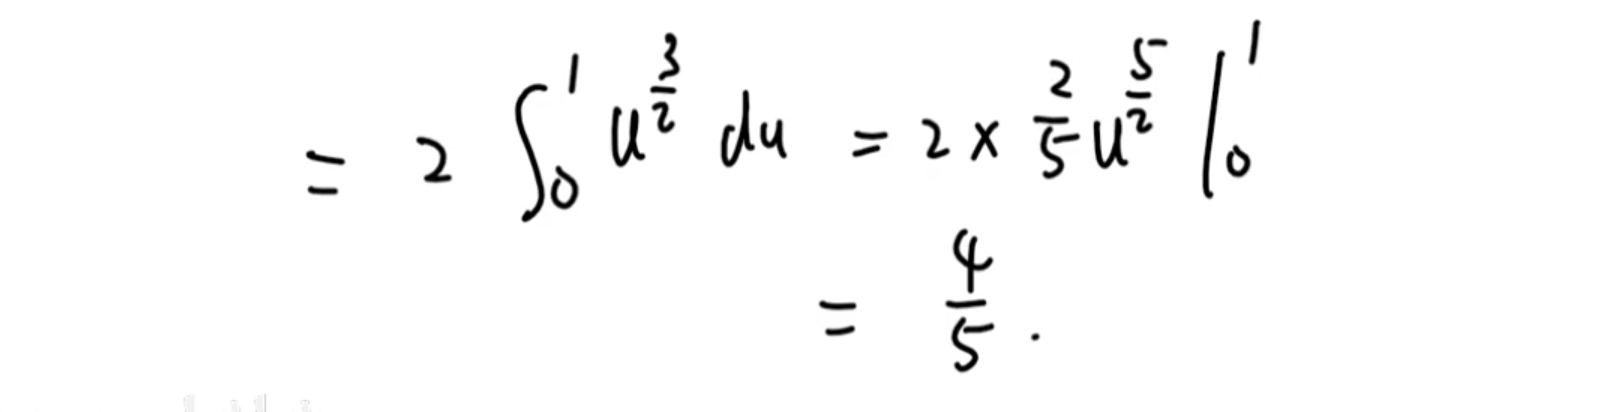 = 2 ∫₀¹ u^{3/2} du = 2 × 2/5 u^{5/2} |₀¹
= 4/5 .